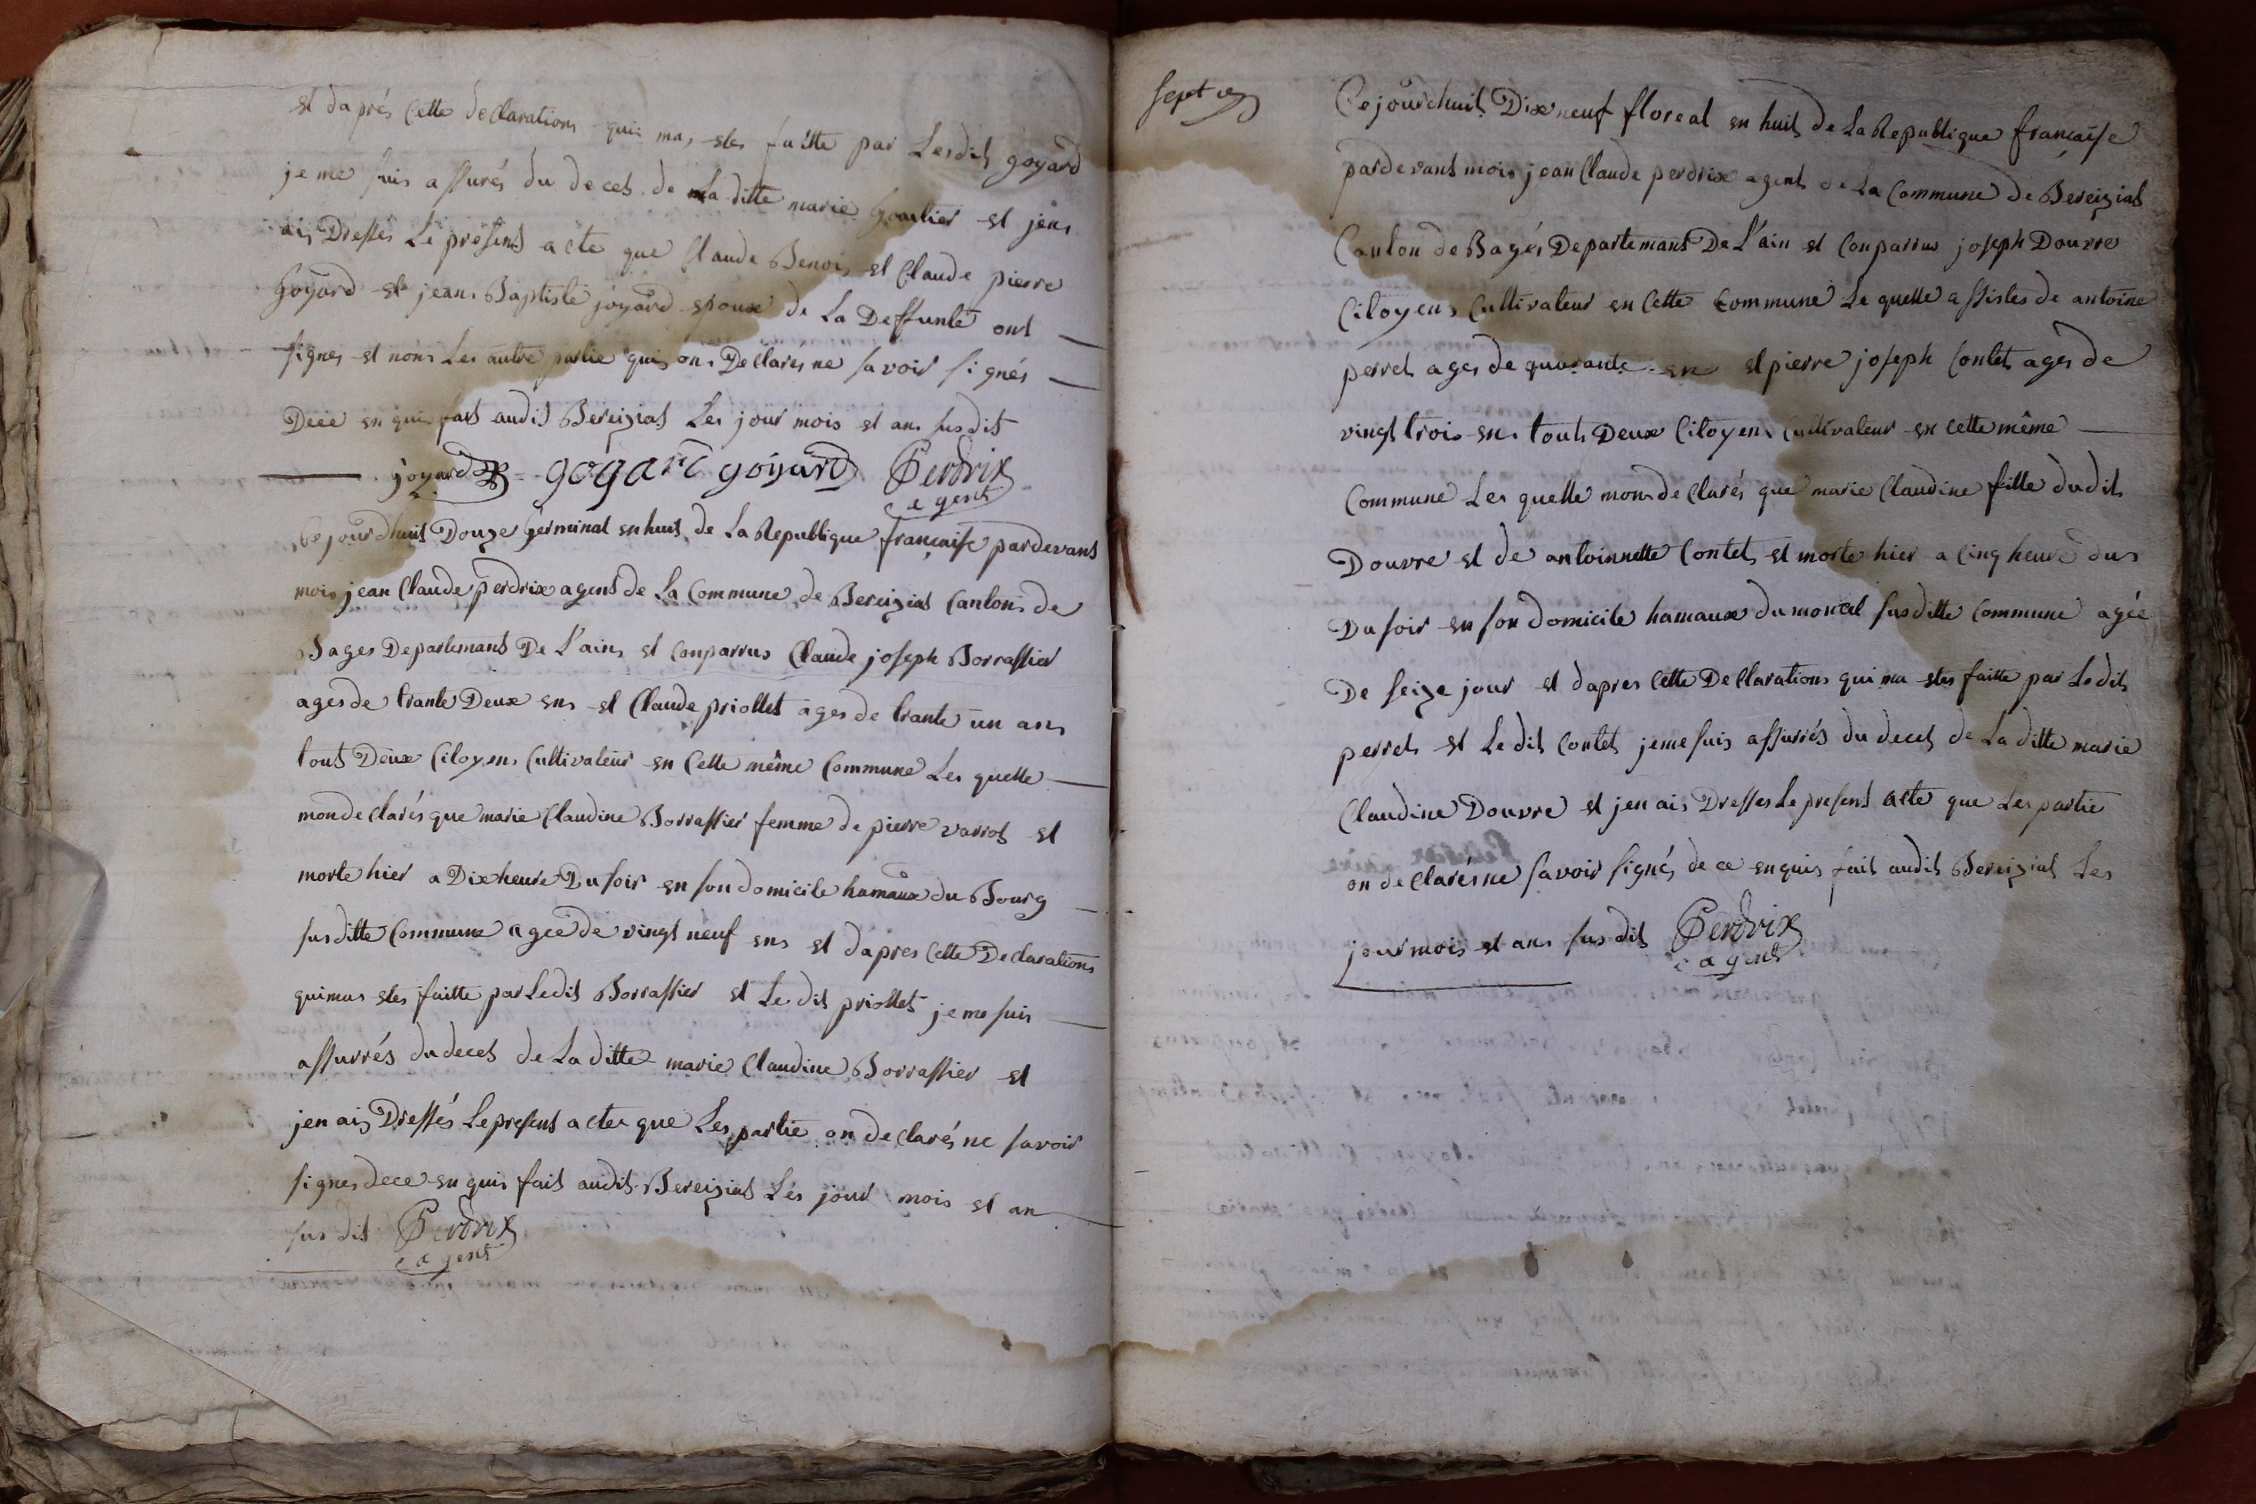 et daprés Cette declarations qui mas etes faitte par Lesdit goyard
je me suis assurés du deces de La ditte marie Goulier et jens
ais Dressés Le present acte que Claude Benois et Claude pierre
Goyard et jeans Baptiste joyard epoux de La Deffunte ont
signes et nons Les autre partie quis ons Declarés ne savoir signés
Dece en quis fait audit Bereizias Les jour mois et ans susdit
joyard gogard goyard Perdrix
agent
Cejourdhuit Douze Germinal en huit de La Republique française pardevant
mois jean Claude perdrix agent de La Commune de Bereizias Canton de
Bages Departemans De L'ain et Conparrus Claude joseph Borrassier
ages de trante Deux ens et Claude priollet ages de trante un ans
tout Deux Citoyens Cultivateur en Cette même Commune Les quelle
mon declarés que marie Claudine Borrassier femme de pierre varrot et
morte hier a Dix heure Du soir en son domicile hamaux du Bourg
susditte Commune agée de vingt neuf ens et dapres Cette Declarations
qui mas etes faitte par Ledit Borrassier et Le dit priollet je me suis
assurrés du deces de La ditte marie Claudine Borrassier et
jen ais Dressés Le present acte que Les partie on declarés ne savoir
signes dece en quis fait audit Bereizias Les jour mois et an
sus dit Perdrix
agent
sept
Cejourdhuit Dix neuf floreal en huit de La Republique française
pardevant mois jean Claude perdrix agent de La Commune de Bereizias
Canton de Bagés Departemans De L'ain et Conparrus joseph Douvre
Citoyens Cultivateur en Cette Commune Le quelle assistes de antoine
perret ages de quarante en et pierre joseph Contet ages de
vingt trois ens tout Deux Citoyens Cultivateur en cette même
Commune Les quelle mons declarés que marie Claudine fille dudit
Douvre et de antoinnette Contet et morte hier a Cinq heure dus
Du soir en son domicile hamaux du moncel susditte Commune agée
De seize jour et dapres Cette Declarations qui ma etes faitte par Ledit
perret et Le dit Contet je me suis assurrés du deces de La ditte marie
Claudine Douvre et jen ais Dresses Le present acte que Les partie
on declarés ne savoir signés de ce enquis fait audit Bereizias Les
jour mois et ans sus dit Perdrix
agent